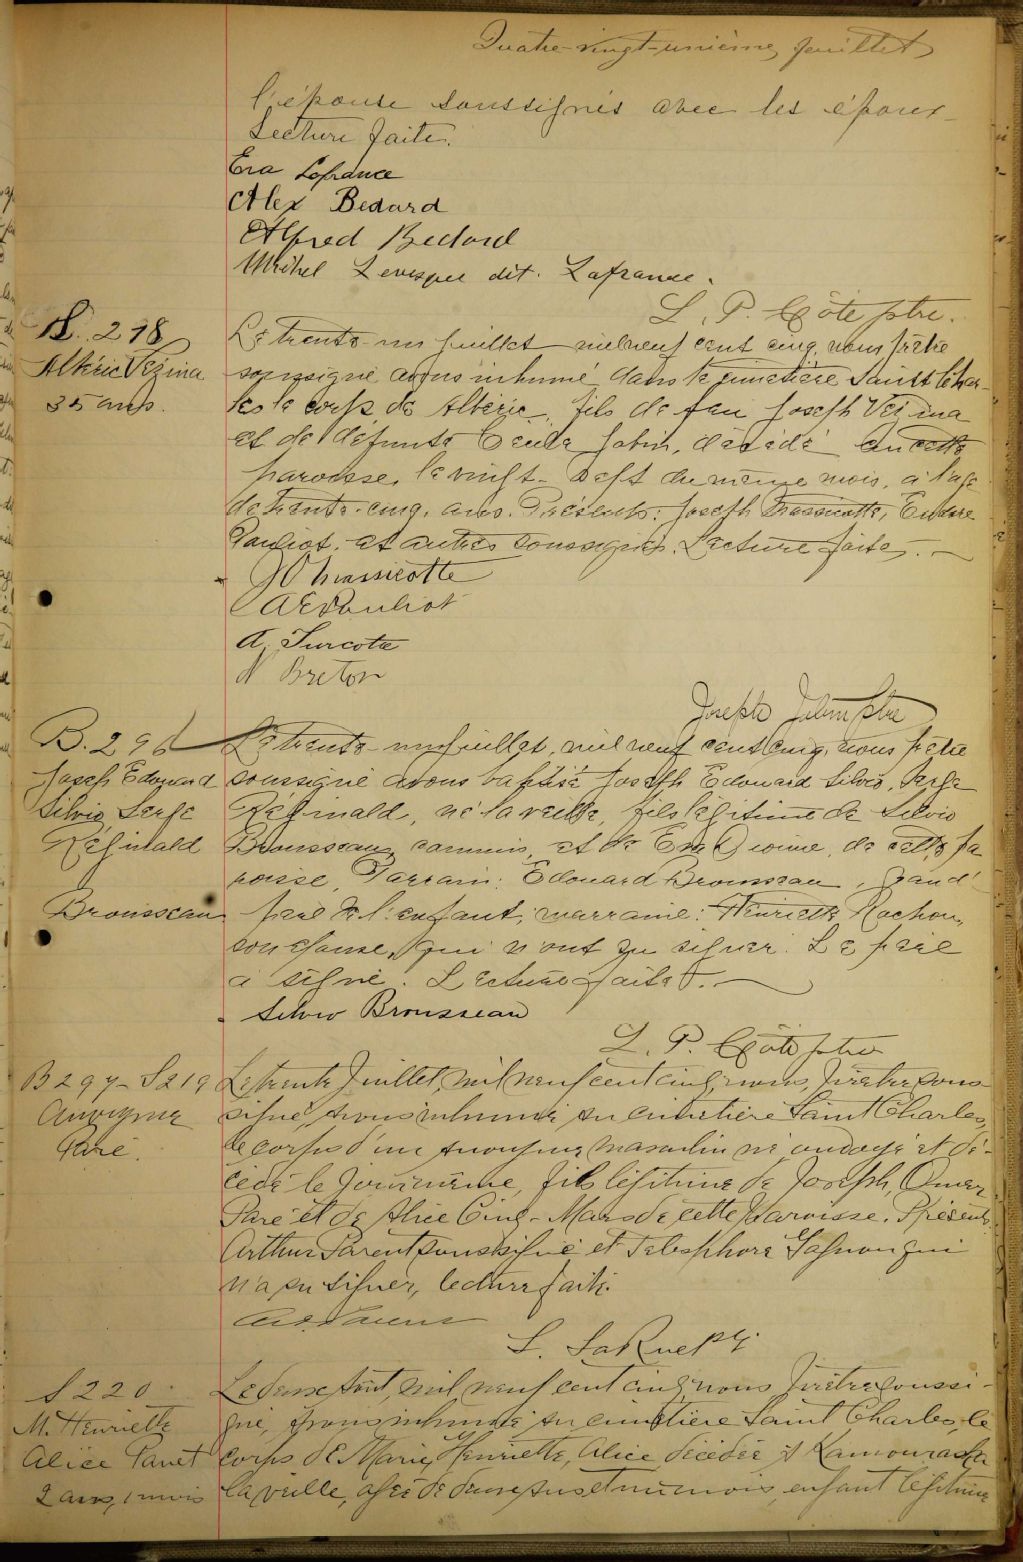 Quatre-vingt-unième feuillet
l'épouse soussignés avec les époux
Lecture faite.
Eva Lafrance
Alex Bedard
Alfred Bedard
Michel Levesque dit. Lafrance.
L. P. Côté ptre.
S. 218
Albéric Vézina
35 ans.
Le trente-un juillet mil neuf cent cinq, nous prêtre
soussigné avons inhumé dans le cimetière Saint Char-
les le corps de Albéric, fils de feu Joseph Vézina
et de défunte Cécile Jobin, décédé en cette
paroisse, le vingt-sept du même mois, à l'âge
de trente-cinq, ans. Présents: Joseph Massicotte,
Pouliot, et autres soussignés. Lecture faite.
J O Massicotte
A E Pouliot
A. Turcotte
N Breton
Joseph Jobin ptre
B. 296
Joseph Edouard
Silvio, Serge
Réginald
Brousseau
Le trente-un juillet, mil neuf cent cinq, nous prêtre
soussigné avons baptisé Joseph Edouard Silvio, Serge
Réginald, né la veille, fils légitime de Silvio
Brousseau, commis, et de Eva Dionne, de cette pa
roisse, Parrain: Edouard Brousseau, grand'
père de l'enfant; marraine: Henriette Rochon,
son épouse, qui n'ont su signer. Le père
a signé. Lecture faite.
Silvio Brousseau
L. P. Côté ptre
B 297 - S 219
Anonyme
Paré.
Le trente Juillet, mil neuf cent cinq, nous, prêtre sous-
signé, avons inhumé au cimetière Saint Charles,
le corps d'un anonyme masculin né, ondoyé et dé-
cédé le jour même, fils légitime de Joseph, Omer
Paré et de Alice Cinq-Mars de cette paroisse. Présents:
Arthur Parent soussigné et Telesphore Gagnon qui
n'a su signer, lecture faite.
Art. Parent
L. LaRue ptr.
S 220.
M. Henriette
Alice Panet
2 ans, 1 mois
Le deux Août, mil neuf cent cinq, nous prêtre soussi-
gné, avons inhumé au cimetière Saint Charles, le
corps de Marie, Henriette, Alice, décédée à Kamouraska
la veille, agée de deux ans et un mois, enfant légitime